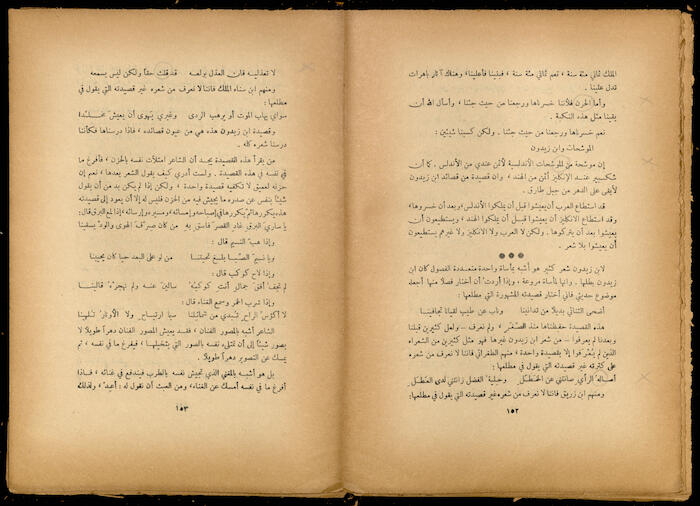 الملك ثماني مئة سنة ، نعم ثماني مئة سنة ، فبنينا فأعلينا، وهناك آثار باهرات
تدل علينا .
وأما الحزن فلأننا خسرناها ورجعنا من حيث جئنا . وأسأل الله أن
يقينا مثل هذه النكبة .
نعم خسرناها ورجعنا من حيث جئنا . ولكن كسبنا شيئين :
الموشحات وابن زيدون
إن موشحة من الموشحات الأندلسية لأثمن عندي من الأندلس . كما أن
شكسبير عند الإنكليز أثمن من الهند ، وان قصيدة من قصائد ابن زيدون
لأبقى على الدهر من جبل طارق .
قد استطاع العرب أن يعيشوا قبل أن يملكوا الأندلس ، وبعد أن خسروها ،
وقد استطاع الانكليز أن يعيشوا قبل أن يملكوا الهند ، ويستطيعون أن
يعيشوا بعد أن يتركوها . ولكن لا العرب ولا الانكليز ولا غيرهم يستطيعون
أن يعيشوا بلا شعر .
لابن زيدون شعر كثير هو أشبه بمأساة واحدة متعددة الفصول كان ابن
زيدون بطلها . وانها لمأساة مروعة ، وإذا أردت أن أختار فصلاً منها أجعله
موضوع حديثي فاني أختار قصيدته المشهورة التي مطلعها :
أضحى التنائي بديلاً من تدانينا وناب عن طيب لقيانا تجافينا
هذه القصيدة حفظناها منذ الصغر ، ولم نعرف – ولعل كثيرين قبلنا
وبعدنا لم يعرفوا – من شعر ابن زيدون غيرها فهو مثل كثيرين من الشعراء
الذين لم يُعْرفوا إلا بقصيدة واحدة ، منهم الطغرائي فاننا لا نعرف من شعره
على كثرته غير قصيدته التي مطلعها :
أصالة الرأي صانتني عن الخطل وحلية الفضل زانتني لدى العطل
ومنهم ابن زريق فاننا لا نعرف من شعره غير قصيدته التي يقول في مطلعها:
١٥٢
لا تعذليه فان العذل يولعه قد قلت حقاً ولكن ليس يسمعه
ومنهم ابن سناء الملك فاننا لا نعرف من شعره غير قصيدته التي يقول في
مطلعها :
سواي يهاب الموت أو يرهب الردى وغيري يهوى أن يعيش مخلدا
وقصيدة ابن زيدون هذه هي من عيون قصائده ، فاذا درسناها فكأننا
درسنا شعره كله .
من يقرأ هذه القصيدة يجد أن الشاعر امتلأت نفسه بالحزن ، فأفرغ ما
في نفسه في هذه القصيدة . ولست أدري كيف يقول الشعر بعدها ، نعم إن
حزنه لعميق لا تكفيه قصيدة واحدة ، ولكن إذا لم يكن بد من أن يقول
شيئاً ينفس عن صدره ما يجيش فيه من الحزن فليس له إلا أن يعود إلى قصيدته
هذه يكررها ثم يكررها في إصباحه وإمسائه ، ومسيره وإسرائه ، إذا لمع البرق قال:
يا ساري البرق غاد القصر فاسق به من كان صرف الهوى والود يسقينا
وإذا هب النسيم قال :
ويا نسيم الصبا بلغ تحيتنا من لو على البعد حيا كان يحيينا
وإذا لاح كوكب قال :
لم نجف أفق جمال أنت كوكبه سالين عنه ولم نهجره قالينا
وإذا شرب الخمر وسمع الغناء قال :
لا أكؤس الراح تبدي من شمائلنا سيما ارتياح ولا الأوتار تلهينا
الشاعر أشبه بالمصور الفنان ، فقد يعيش المصور الفنان دهراً طويلاً لا
يصور شيئاً إلى أن تمتلىء نفسه بالصور التي يتخيلها ، فيفرغ ما في نفسه ، ثم
يمسك عن التصوير دهراً طويلاً .
بل هو أشبه بالمغني الذي تجيش نفسه بالطرب فيندفع في غنائه ، فاذا
أفرغ ما في نفسه أمسك عن الغناء، ومن العبث أن تقول له : أعِدْ ، ولذلك
١٥٣